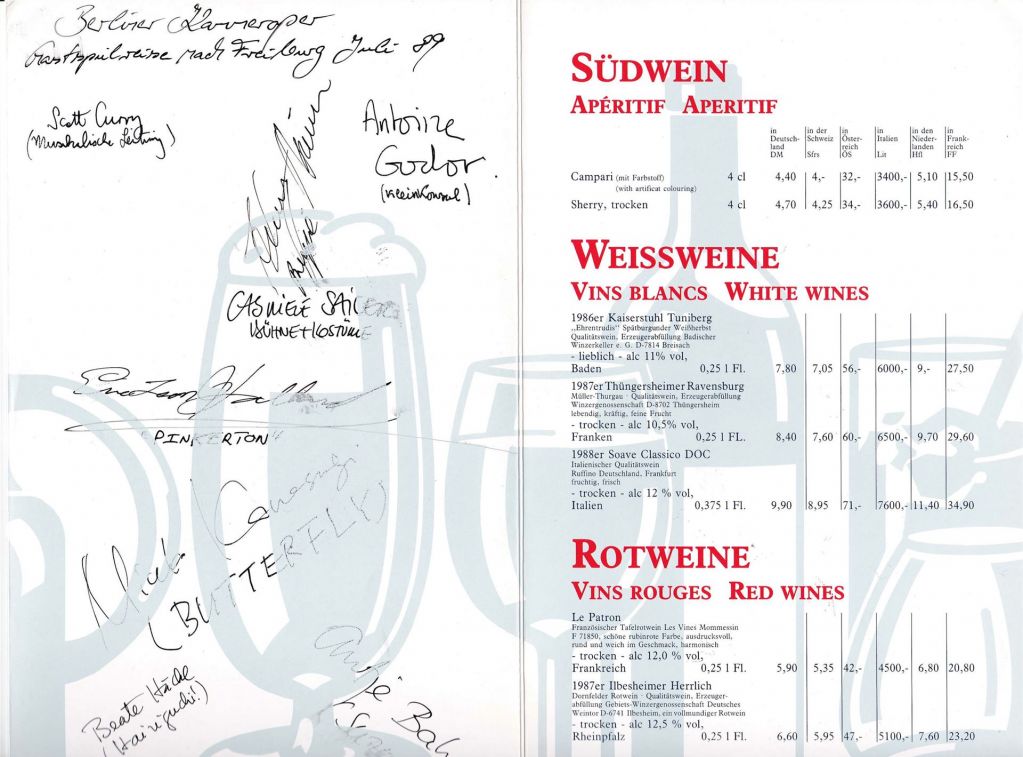 Berliner Kammeroper
Gastspielreise nach Freiburg Juli 89
Scott Curry
(Musikalische Leitung)
Antoine
Godor
GABRIELE
BÜHNE + KOSTÜME
"PINKERTON"
(BUTTERFLY)
Beate
SÜDWEIN
APÉRITIF APERITIF
in Deutsch-land DM
in der Schweiz Sfrs
in Öster-reich ÖS
in Italien Lit
in den Nieder-landen Hfl
in Frank-reich FF
Campari (mit Farbstoff) 4 cl 4,40 4,- 32,- 3400,- 5,10 15,50
(with artificat colouring)
Sherry, trocken 4 cl 4,70 4,25 34,- 3600,- 5,40 16,50
WEISSWEINE
VINS BLANCS WHITE WINES
1986er Kaiserstuhl Tuniberg
„Ehrentrudis" Spätburgunder Weißherbst
Qualitätswein, Erzeugerabfüllung Badischer
Winzerkeller e. G. D-7814 Breisach
- lieblich - alc 11% vol,
Baden 0,25 l Fl. 7,80 7,05 56,- 6000,- 9,- 27,50
1987er Thüngersheimer Ravensburg
Müller-Thurgau · Qualitätswein, Erzeugerabfüllung
Winzergenossenschaft D-8702 Thüngersheim
lebendig, kräftig, feine Frucht
- trocken - alc 10,5% vol,
Franken 0,25 l FL. 8,40 7,60 60,- 6500,- 9,70 29,60
1988er Soave Classico DOC
Italienischer Qualitätswein
Ruffino Deutschland, Frankfurt
fruchtig, frisch
- trocken - alc 12 % vol,
Italien 0,375 l Fl. 9,90 8,95 71,- 7600,- 11,40 34,90
ROTWEINE
VINS ROUGES RED WINES
Le Patron
Französischer Tafelrotwein Les Vines Mommessin
F 71850, schöne rubinrote Farbe, ausdrucksvoll,
rund und weich im Geschmack, harmonisch
- trocken - alc 12,0 % vol,
Frankreich 0,25 l Fl. 5,90 5,35 42,- 4500,- 6,80 20,80
1987er Ilbesheimer Herrlich
Dornfelder Rotwein · Qualitätswein, Erzeuger-
abfüllung Gebiets-Winzergenossenschaft Deutsches
Weintor D-6741 Ilbesheim, ein vollmundiger Rotwein
- trocken - alc 12,5 % vol,
Rheinpfalz 0,25 l Fl. 6,60 5,95 47,- 5100,- 7,60 23,20